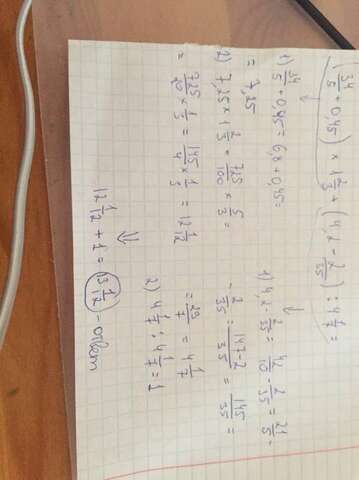 (34/5 + 0,45) × 1 2/3 + (4,2 - 2/35) : 4 1/7 =
1) 34/5 + 0,45 = 6,8 + 0,45 =
= 7,25
2) 7,25 × 1 2/3 = 725/100 × 5/3 =
= 725/20 × 1/3 = 145/4 × 1/3 = 12 1/12
1) 4,2 - 2/35 = 42/10 - 2/35 = 21/5 -
- 2/35 = 147-2/35 = 145/35 =
= 29/7 = 4 1/7
2) 4 1/7 : 4 1/7 = 1
12 1/12 + 1 = 13 1/12 - ответ